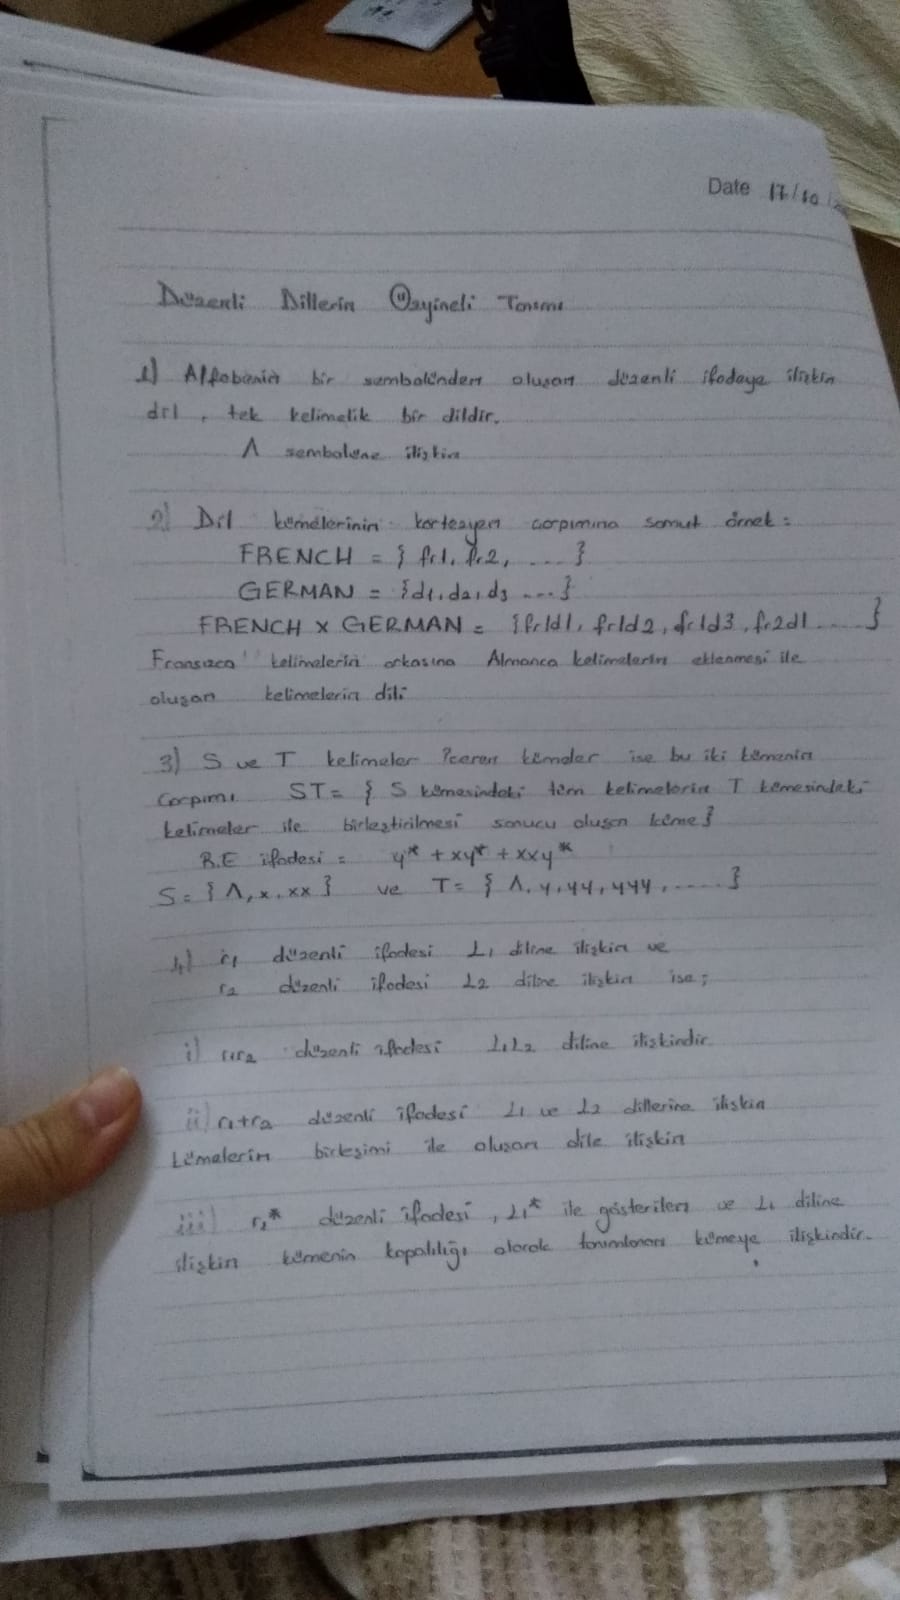 Date 17/10/2
Düzenli Dillerin Özyineli Tanımı
1) Alfabenin bir sembolünden oluşan düzenli ifadeye ilişkin
dil, tek kelimelik bir dildir.
Λ sembolüne ilişkin
2) Dil kümelerinin kartezyen çarpımına somut örnek:
FRENCH = { fr1, fr2, .... }
GERMAN = {d1, d2, d3 ....}
FRENCH x GERMAN = {fr1d1, fr1d2, fr1d3, fr2d1 ..... }
Fransızca kelimelerin arkasına Almanca kelimelerin eklenmesi ile
oluşan kelimelerin dili
3) S ve T kelimeler içeren kümeler ise bu iki kümenin
Çarpımı ST = { S kümesindeki tüm kelimelerin T kümesindeki
kelimeler ile birleştirilmesi sonucu oluşan küme}
R.E ifadesi = y* + xy* + xxy*
S = {Λ, x, xx } ve T = { Λ, y, yy, yyy, ..... }
4) r1 düzenli ifadesi L1 diline ilişkin ve
r2 düzenli ifadesi L2 diline ilişkin ise;
i) r1r2 düzenli ifadesi L1L2 diline ilişkindir
ii) r1+r2 düzenli ifadesi L1 ve L2 dillerine ilişkin
kümelerin birleşimi ile oluşan dile ilişkin
iii) r1* düzenli ifadesi, L1* ile gösterilen ve L1 diline
ilişkin kümenin kapalılığı olarak tanımlanan kümeye ilişkindir.